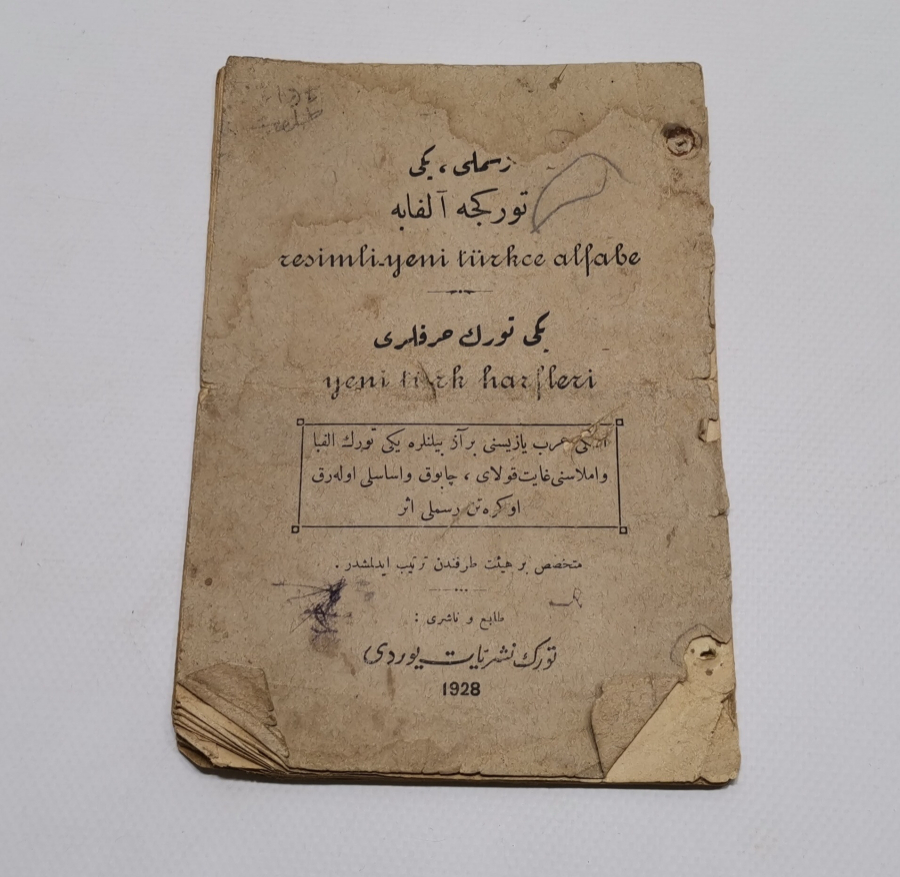 رسملی ، یکی
تورکجه آلفابه
resimli-yeni türkce alfabe
یکی تورك حرفلری
yeni türk harfleri
عرب یازیسنی بر آز بیلنلره یکی تورك الفبا
واملاسنی غایت قولای ، چابوق واساسلی اوله‌رق
اوکره‌تن رسملی اثر
متخصص بر هیئت طرفندن ترتیب ایدلمشدر .
طابع و ناشری :
تورك نشریات یوردی
1928